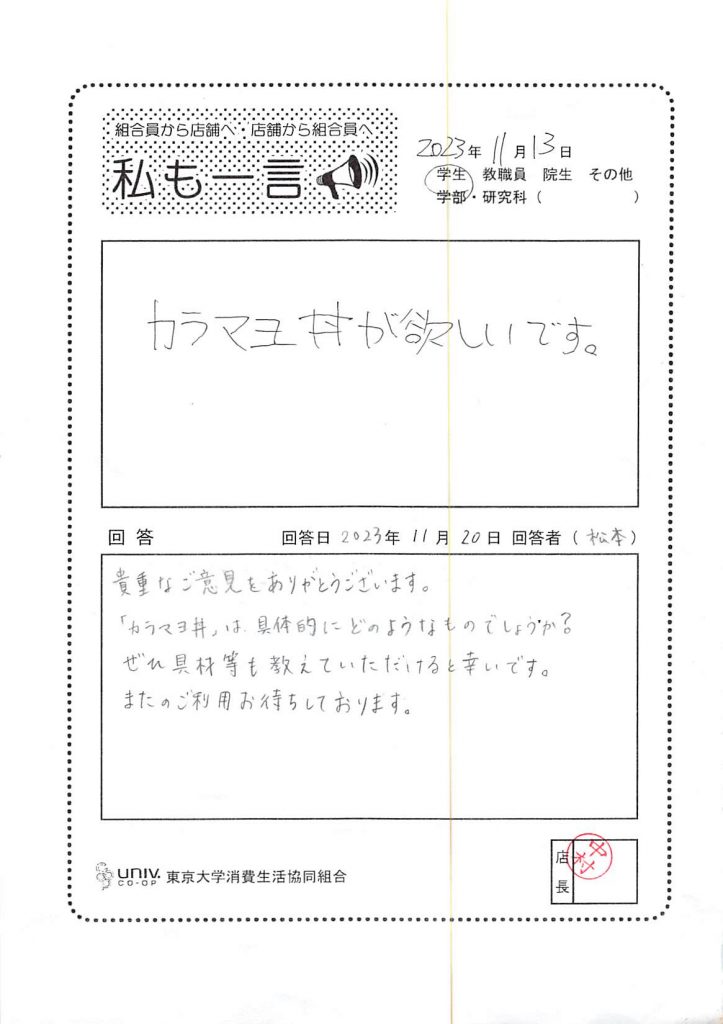 組合員から店舗へ・店舗から組合員へ
私も一言
2023年 11月13日
学生 教職員 院生 その他
学部・研究科 ( )
カラマヨ丼が欲しいです。
回答 回答日 2023年 11月 20日 回答者 (松本)
貴重なご意見をありがとうございます。
「カラマヨ丼」は、具体的にどのようなものでしょうか?
ぜひ具材等も教えていただけると幸いです。
またのご利用お待ちしております。
店長
中村
UNIV. CO-OP 東京大学消費生活協同組合